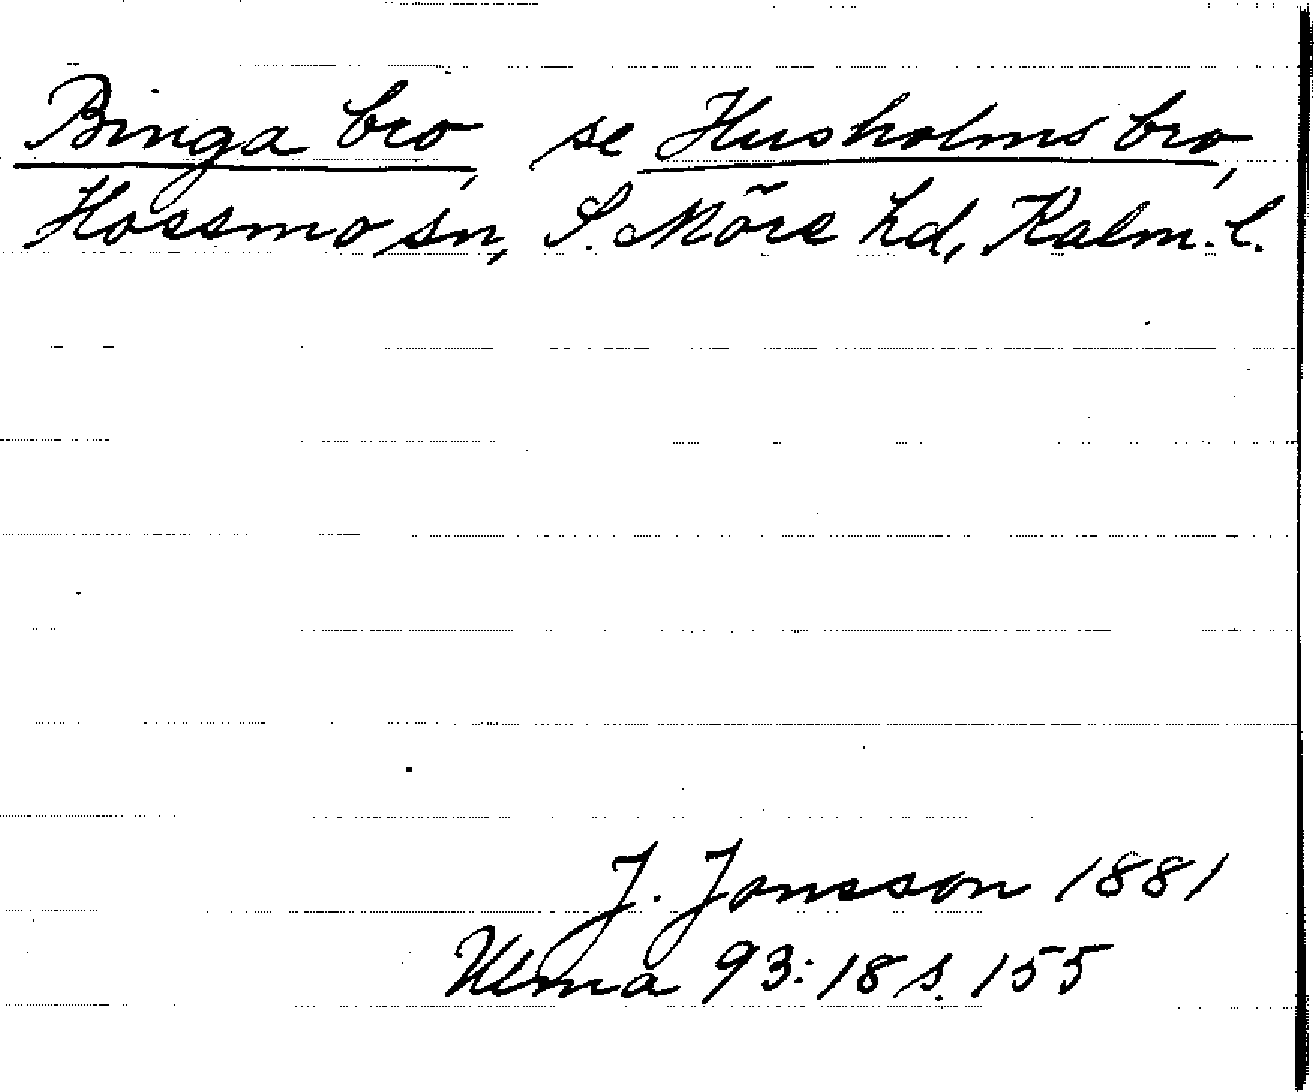 Binga bro, se Husholms bro,
Hossmo sn, S. Möre hd, Kalm. l.
J. Jonsson 1881
Ulma 93:18 s. 155